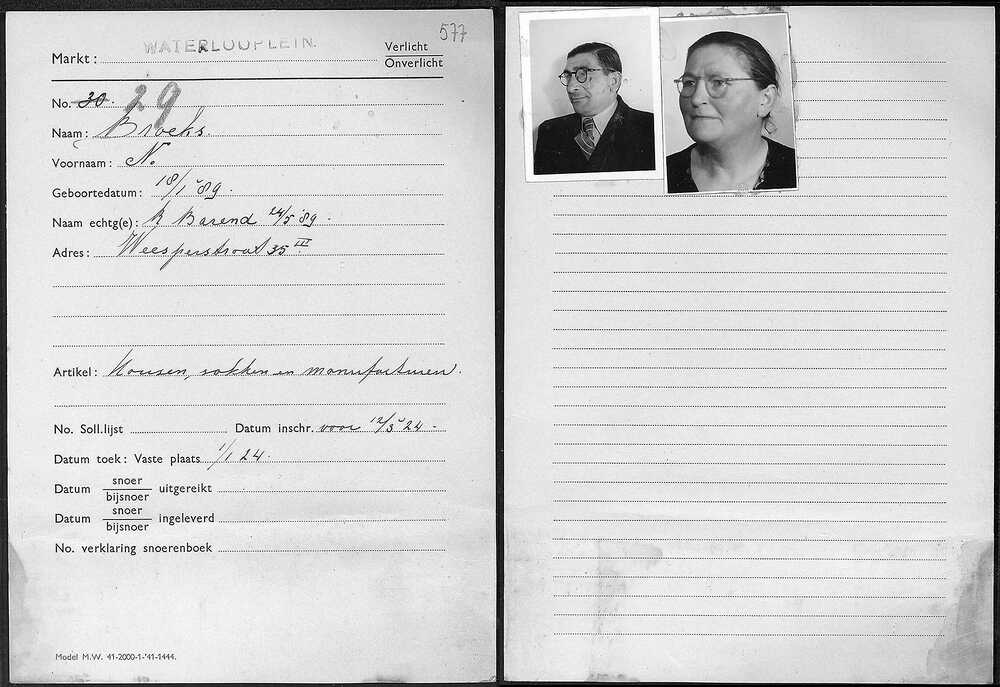 577
Markt: WATERLOOPLEIN.
Verlicht
Onverlicht
No. 30. 29
Naam: Broeks.
Voornaam: N.
Geboortedatum: 18/1 '89.
Naam echtg(e): R Barend 24/5 '89.
Adres: Weesperstraat 35 III
Artikel: Kousen, sokken en manufacturen.
No. Soll.lijst Datum inschr. voor 12/3 '24 -
Datum toek: Vaste plaats 1/1 24.
Datum snoer/bijsnoer uitgereikt
Datum snoer/bijsnoer ingeleverd
No. verklaring snoerenboek
Model M.W. 41-2000-1-'41-1444.